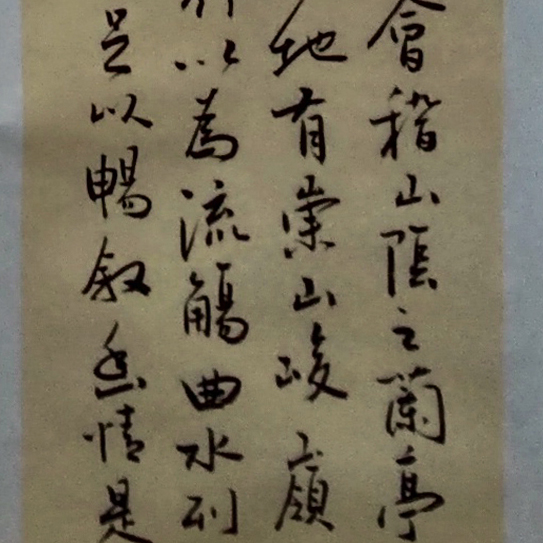 會稽山陰之蘭亭
地有崇山峻嶺
以為流觴曲水列
足以暢叙幽情是